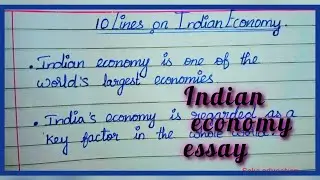 10 lines on Indian Economy.
• Indian economy is one of the
world's largest economies
• India's economy is regarded as a
key factor in the whole world.
Indian
economy
essay